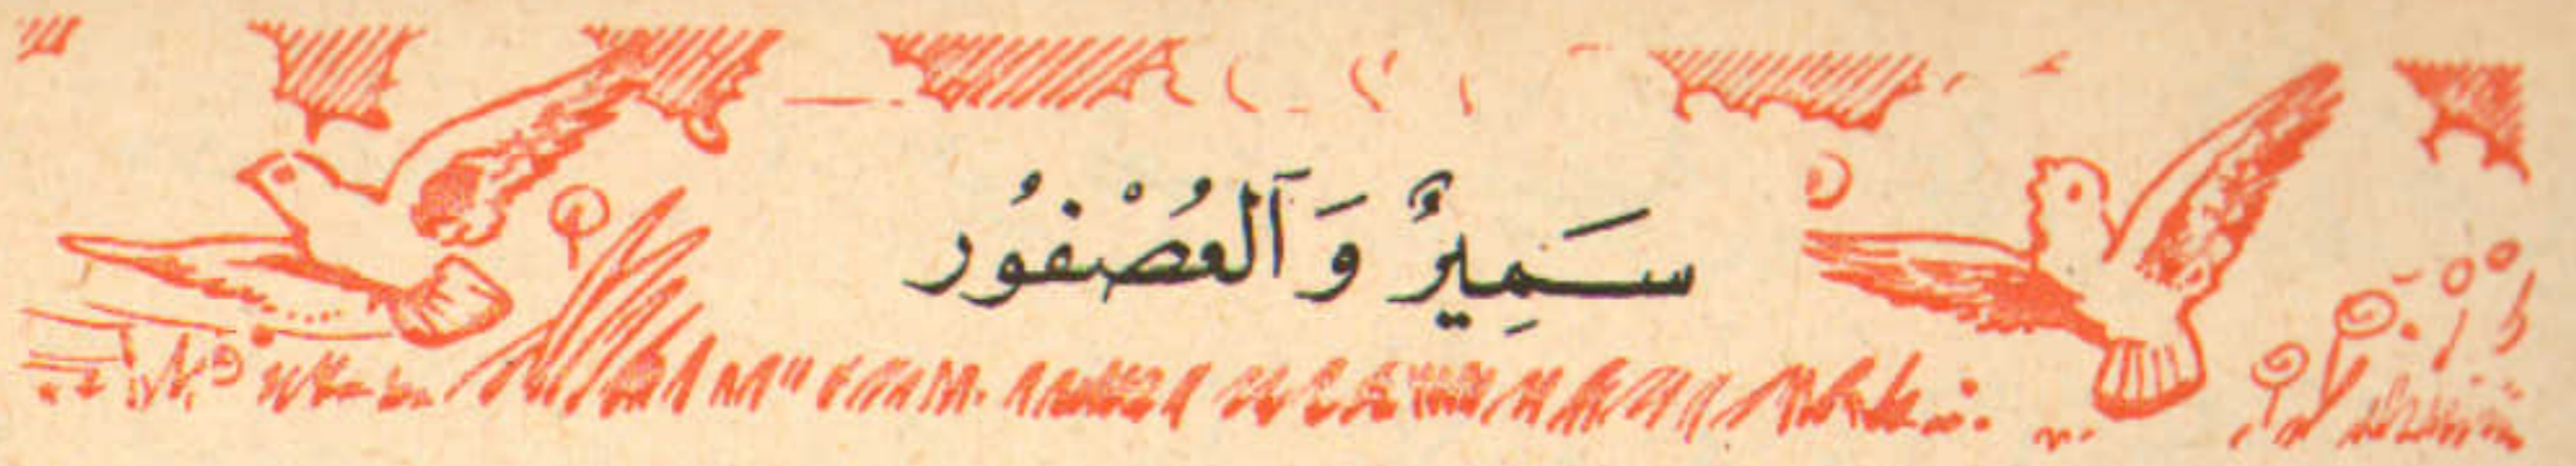 سَمِيرٌ وَٱلْعُصْفُور